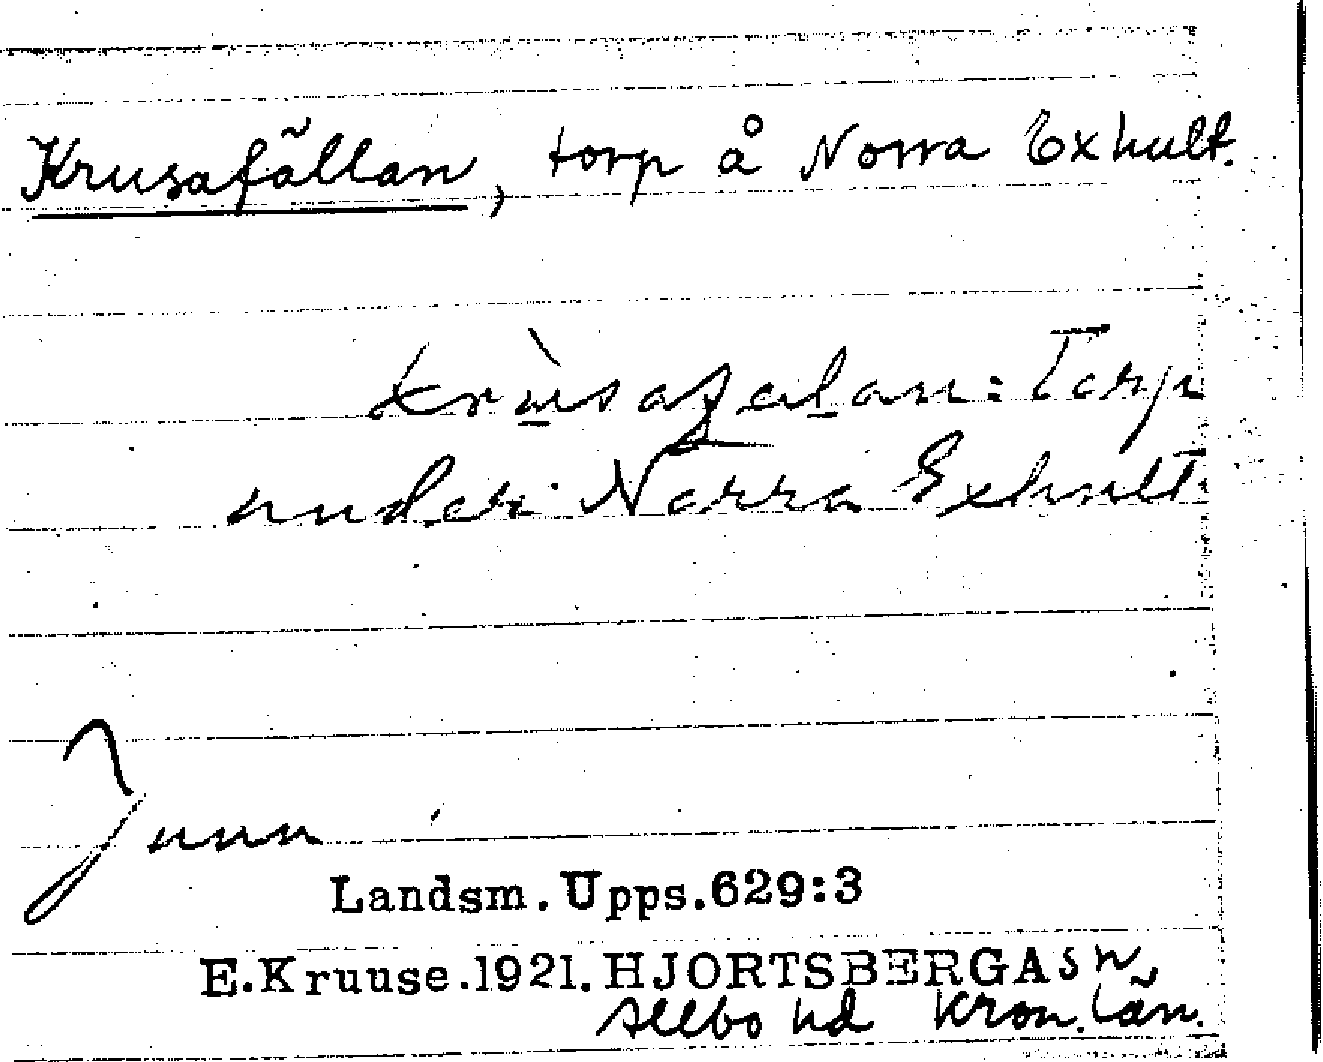 Krusafällan, torp å Norra Exhult.
krùsafälan: Torp
under Norra Exhult.
Junn
Landsm. Upps. 629:3
E.Kruuse.1921. HJORTSBERGA sn,
Allbo hd Kron. län.